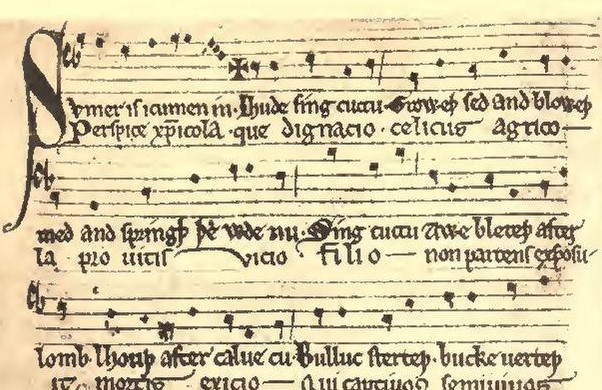 Sumer is icumen in. Lhude sing cuccu. Groweþ sed and bloweþ
Perspice xp̄icola. que dignacio. celicus agrico
med and springþ þe wde nu. Sing cuccu Awe bleteþ after
la pro uitis vicio filio non parcens exposu
lomb lhouþ after calue cu. Bulluc sterteþ. bucke uerteþ
it mortis exicio Qui captiuos semiuiuos